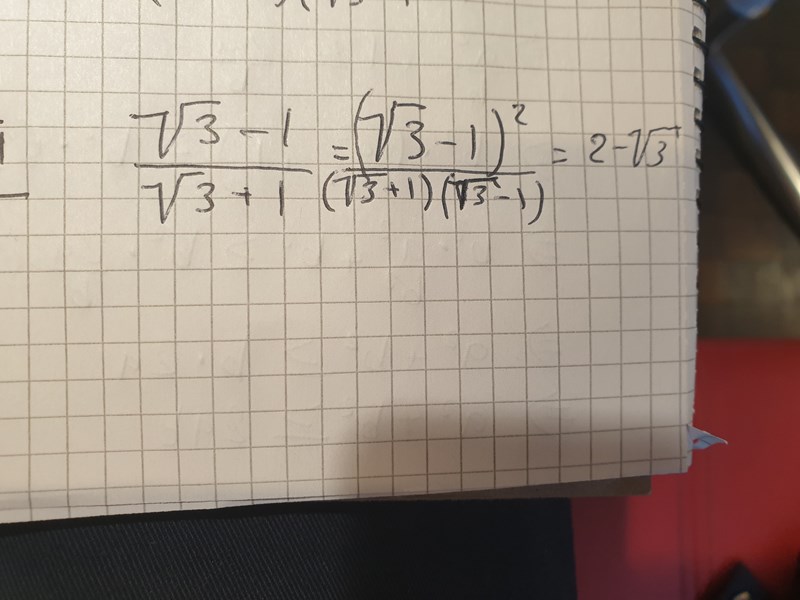 (√3 - 1)/(√3 + 1) = (√3 - 1)²/((√3 + 1)(√3 - 1)) = 2 - √3